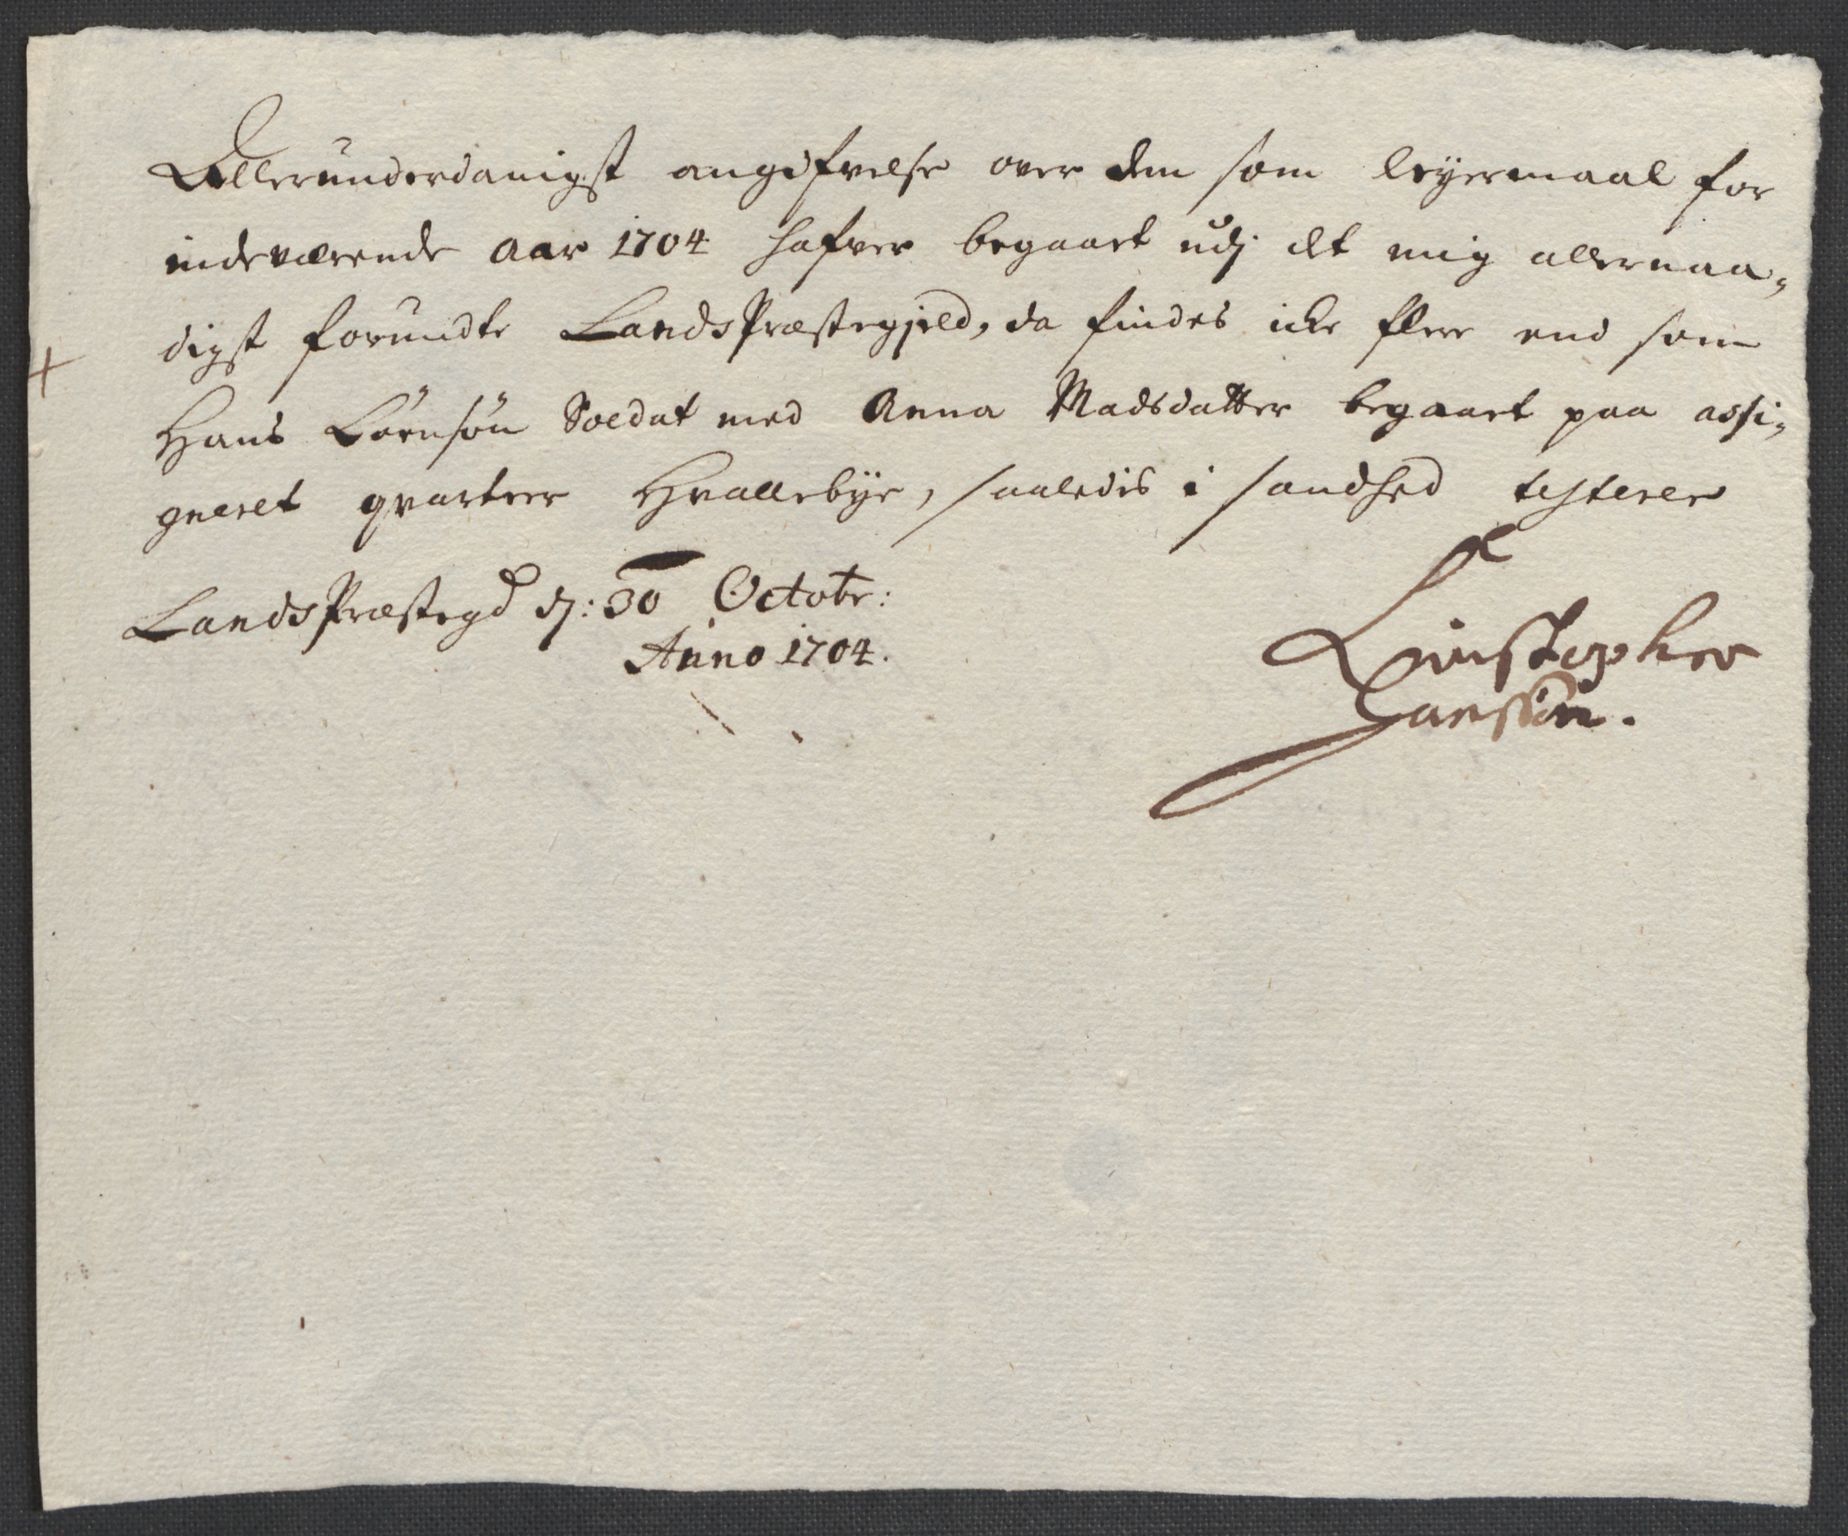 Allerunderdanigst angifvelse over dem som leyermaal for
indeværende Aar 1704 hafver begaaet udj det mig allernaa-
digst forundte Lands Præstegjeld, da findes icke fleer end som
Hans Soldat med Anna Madsdatter begaaet paa assi-
gneret qvarteer Hvallebye, saaledis i sandhed testerer
Lands Præstegd dj: 30 Octobr:
Anno 1704.
Christopher
Hanssøn.